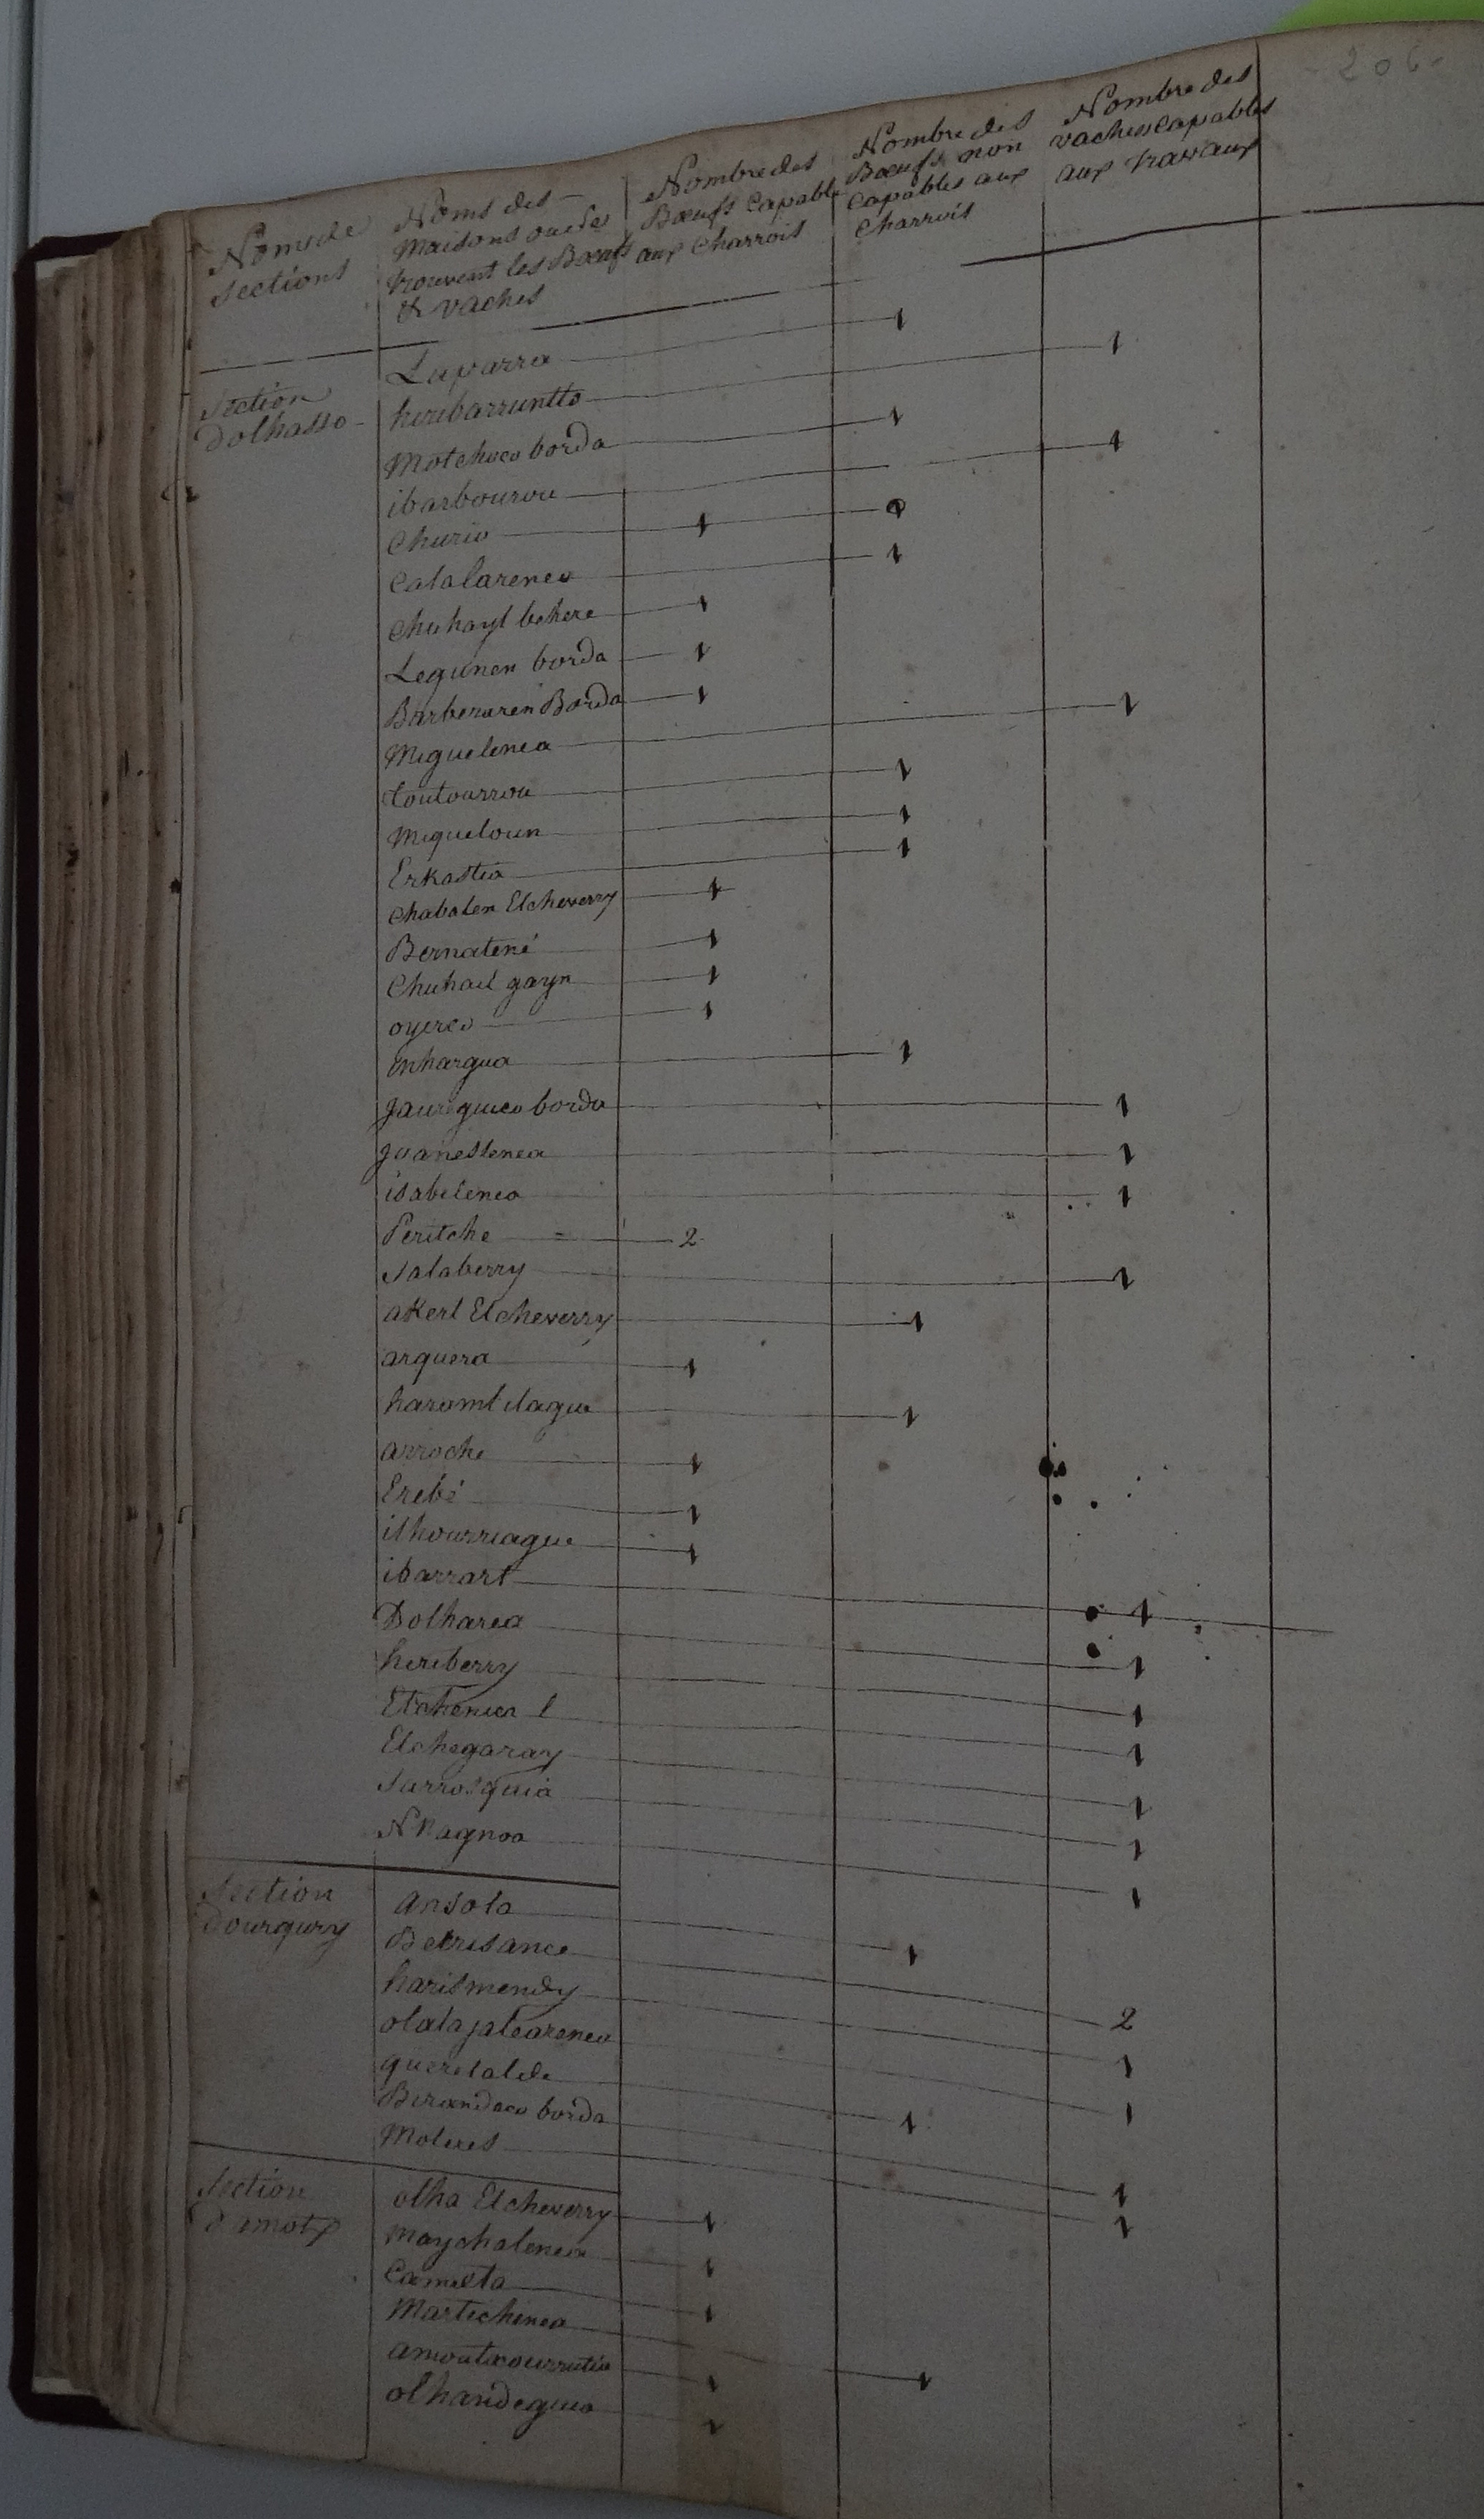 206
Noms de
Sections
Noms des
Maisons ou des
trouvent les Bœufs
& vaches
Nombre des
Bœufs Capable
aux Charrois
Nombre des
Bœufs non
Capables aux
Charrois
Nombre des
vaches capables
aux travaux
Section
dolhasso
Laparra 1
hiribarruntto 1
Motchoco borda 1
ibarbourou 1
Churio 1
Catalarenea 1
Chuhayl behere 1
Legunen borda 1
Barberaren Borda 1
Miguelenea 1
toutourrou 1
Migueloun 1
Erkastia 1
Chabaten Etcheverry 1
Bernatené 1
Chuhail gayn 1
oyerco 1
inhargua 1
jaureguico borda 1
juanestenea 1
isabelenea 1
Peritche = 2
Salaberry 1
akerl Etcheverry 1
arguera 1
harombilague 1
arroche 1
Erebé 1
ilhourriague 1
ibarrart 1
Dolharea 1
heriberry 1
Etchenica l 1
Etchegaray 1
Sarrosquia 1
Nhagnoa 1
Section
Dourqury
ansola 1
Betrisance 2
harismendy 1
olalajalearenea 1
queretalde 1
Birandaco borda 1
Moleres 1
Section
olha Etcheverry 1
Maychalenea 1
Cometa 1
Martichenea 1
amoutacourrutia 1
olhandeguia 1